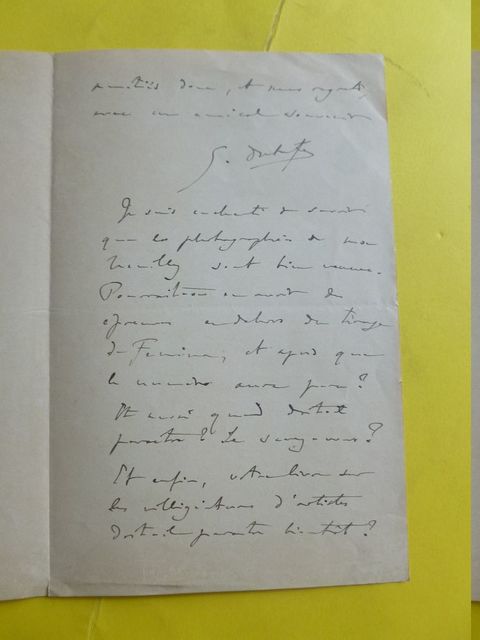 amitiés donc, et mes regrets,
avec un amical souvenir
G.
Je suis enchanté de savoir
que les photographies de mon
Neuilly sont bien venues.
Pourrait-on en avoir des
épreuves en dehors du tirage
de Femina, et après que
le numéro aura paru?
Et aussi quand doit-il
paraître? Le savez-vous?
Et enfin, votre livre sur
les villégiatures d'artistes
doit-il paraître bientôt?